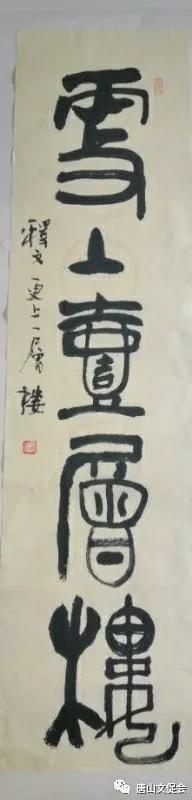 更上壹層樓
释文更上一层楼
唐山文促会